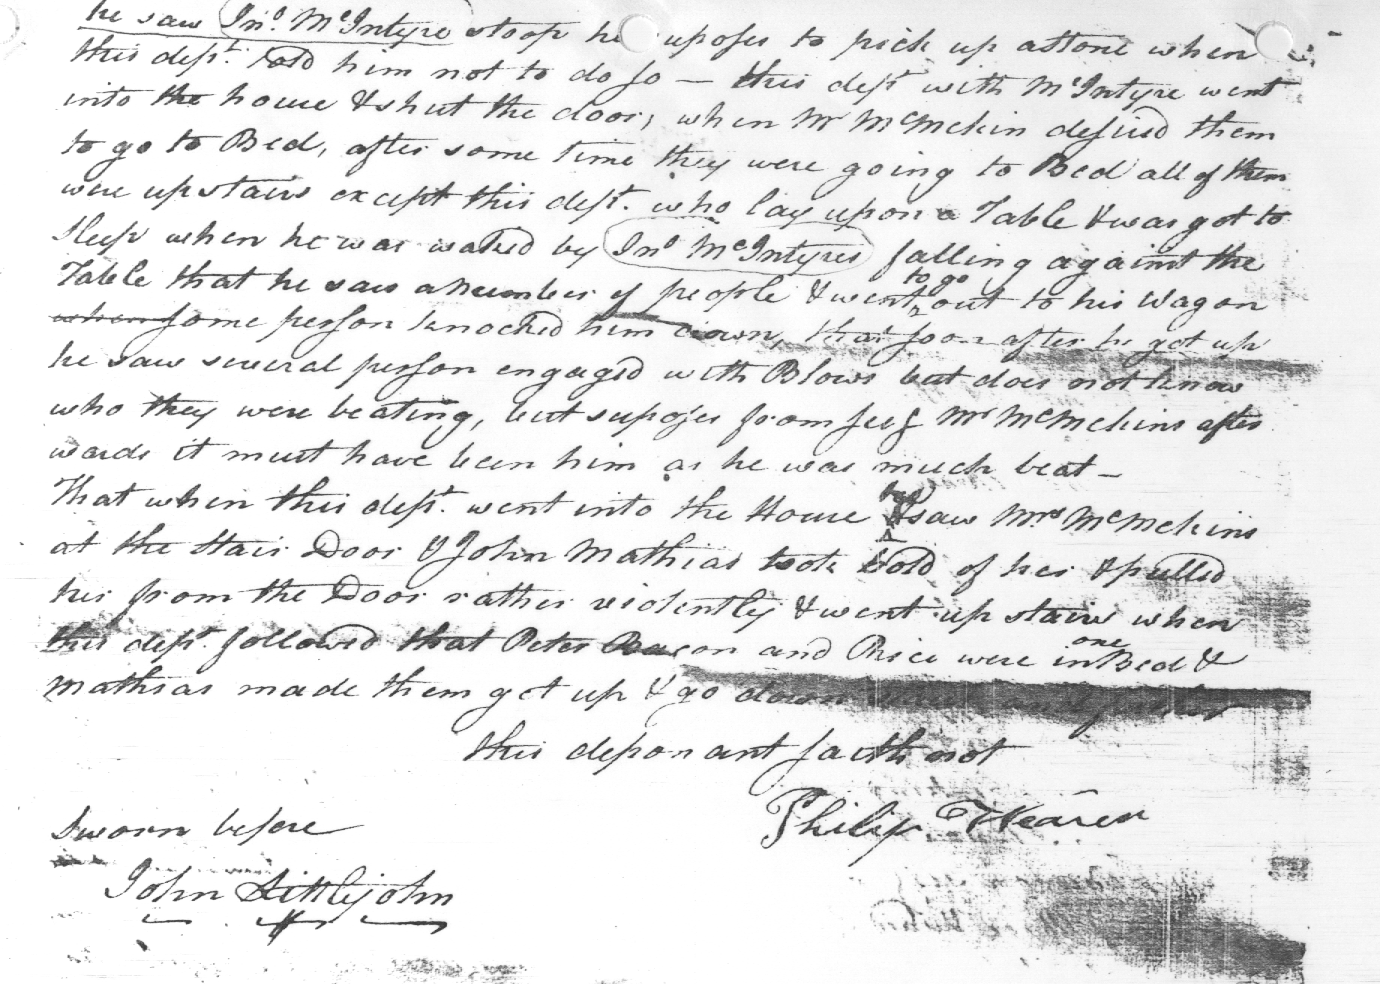 he saw Jno. McIntyre stoop he suposes to pick up a stone when
this dept. told him not to do so — this dept with McIntyre went
into the house & shut the door, when Mr McMckin desired them
to go to Bed, after some time they were going to Bed all of them
were upstairs except this dept. who lay upon a Table & was got to
Sleep when he was waked by Jno McIntyres falling against the
Table that he saw a Number of people & went to go out to his Wagon
when some person knocked him down, that soon after he got up
he saw several person engaged with Blows but does not know
who they were beating, but suposes from seeg Mr McMckins after
wards it must have been him as he was much beat —
That when this dept. went into the House he saw Mrs McMckins
at the Stair Door & John Mathias took hold of her & pulled
her from the Door rather violently & went up stairs when
this dept. followed that Peter Beacon and Price were in one Bed &
Mathias made them get up & go down and further
this deponant saith not
Sworn before
Philip Hearen
John Littlejohn